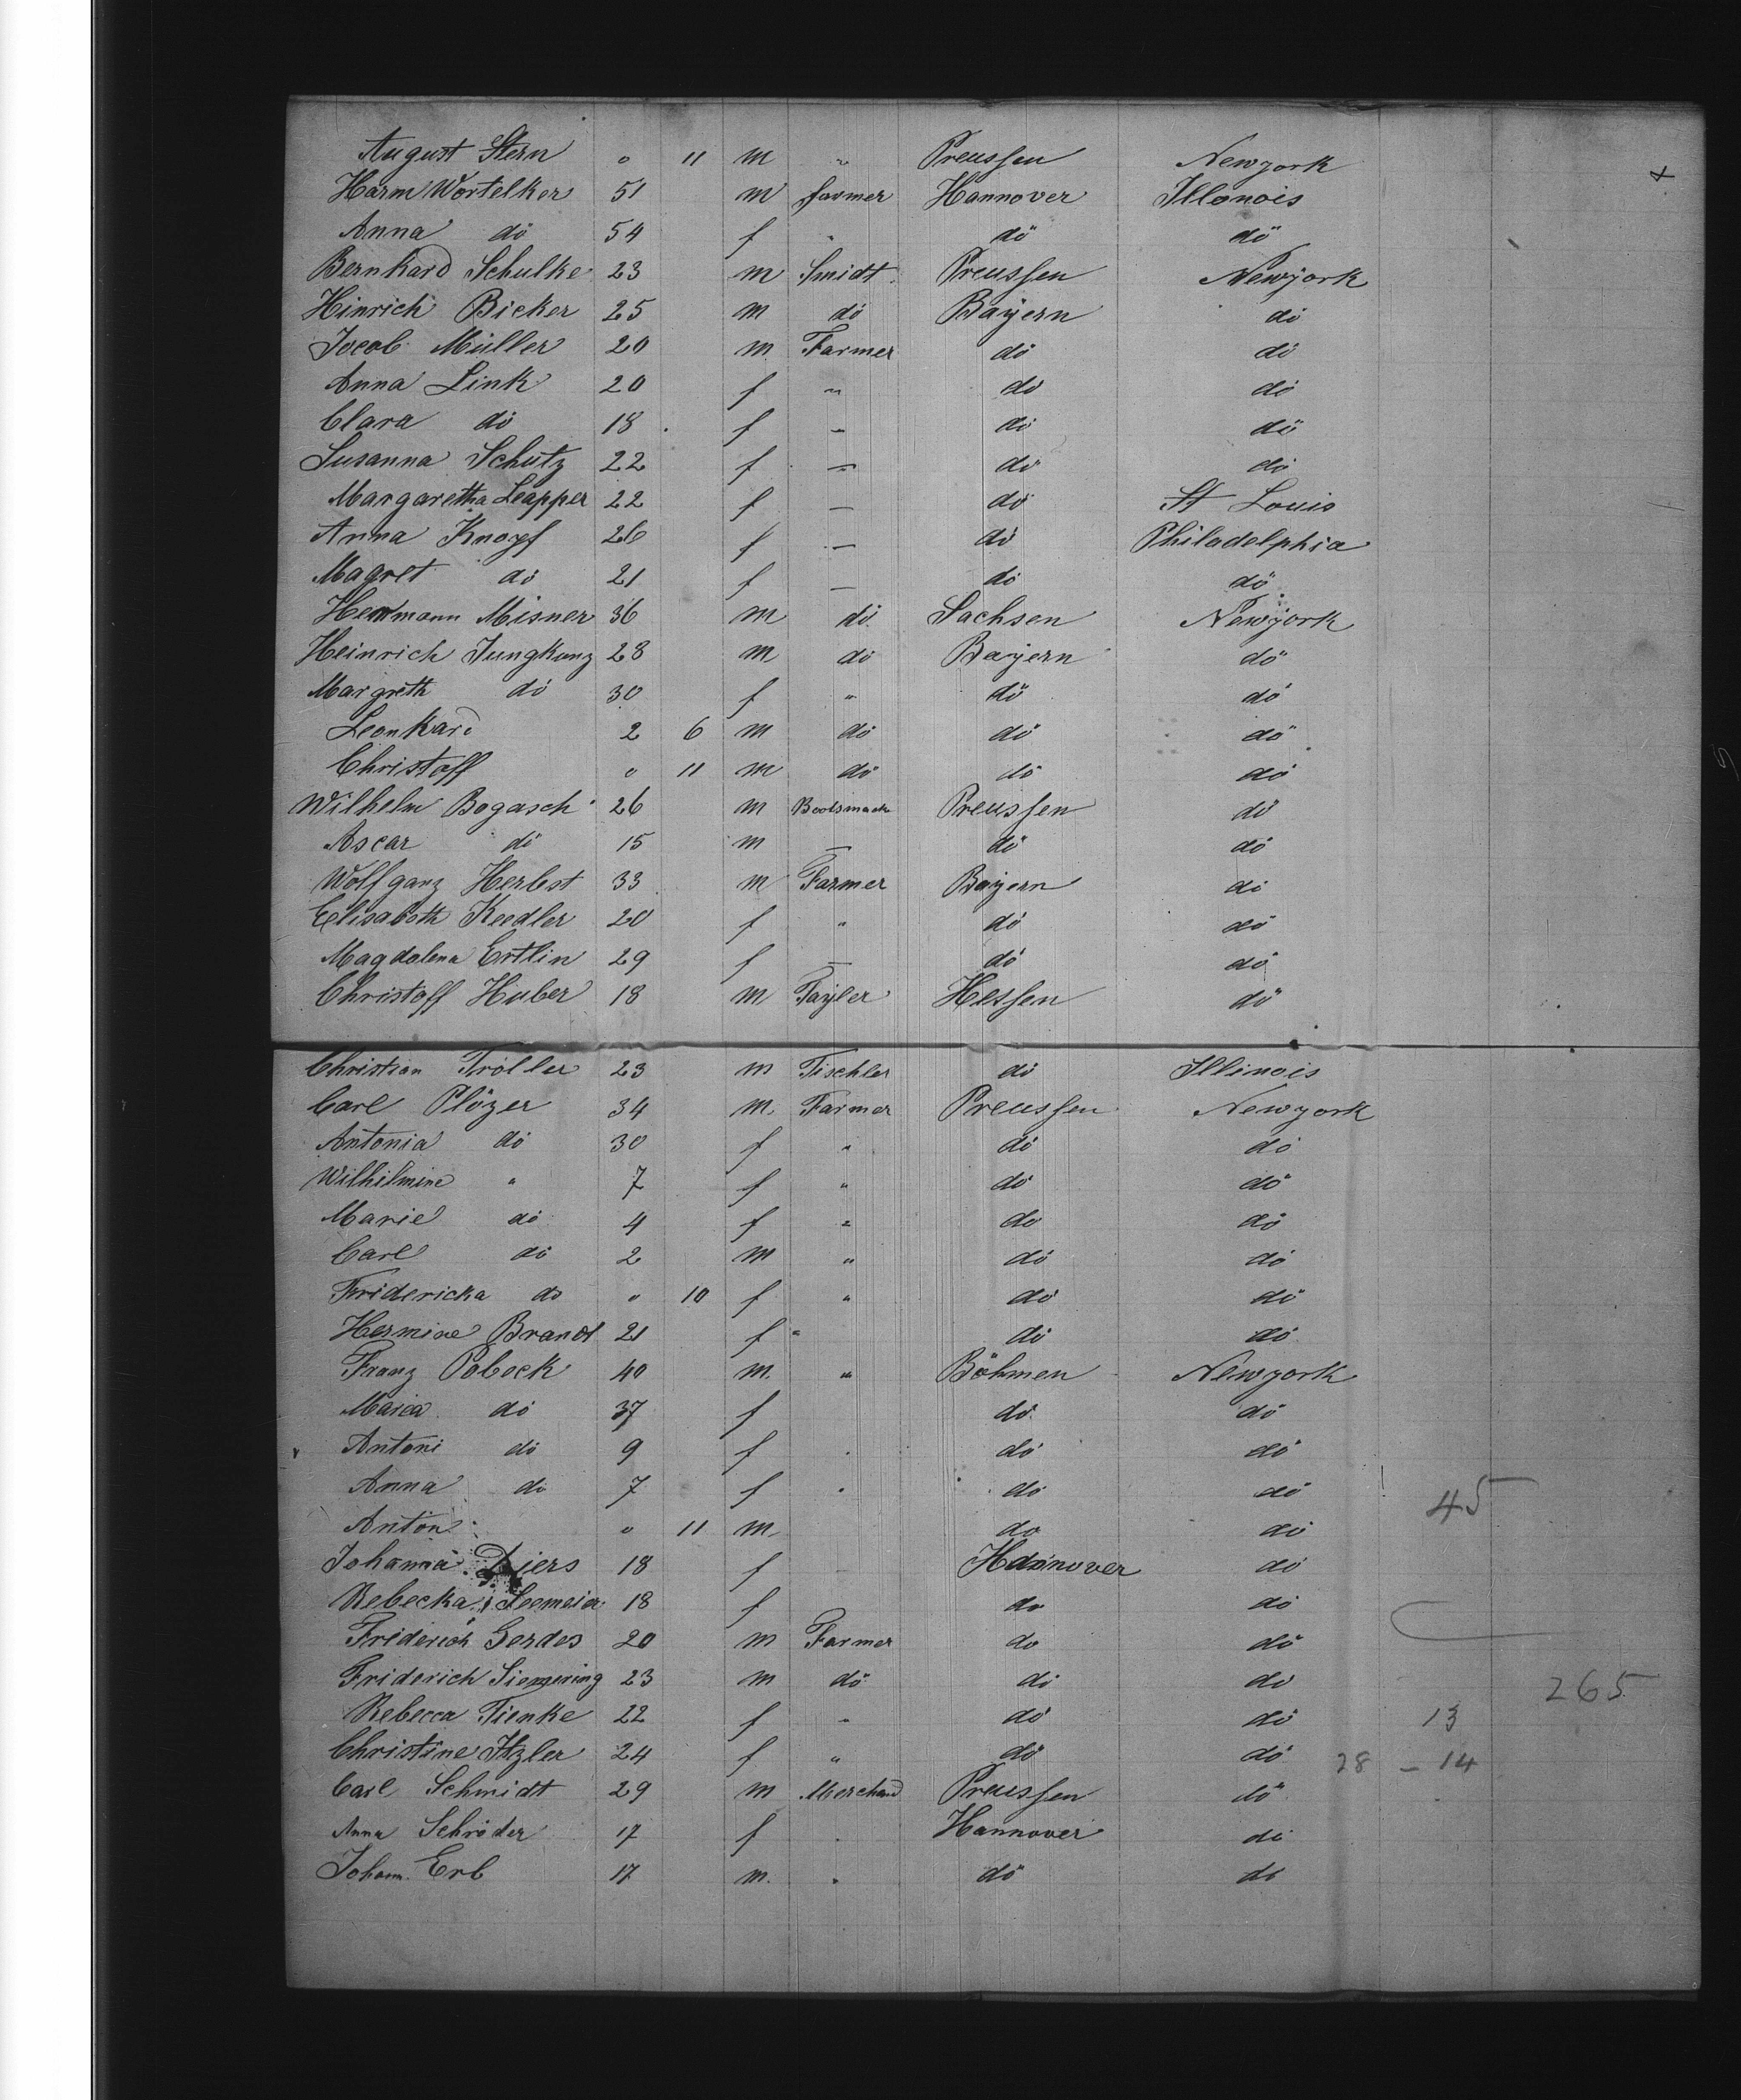 August Stern 0 11 m " Preussen Newyork
Harm Wortelker 51 m farmer Hannover Illonois
Anna do 54 f " do do
Bernhard Schulke 23 m Smidt Preussen Newyork
Hinrich Bicker 25 m do Bayern do
Jocob Müller 20 m Farmer do do
Anna Link 20 f " do do
Clara do 18 f — do do
Susanna Schutz 22 f — do do
Margaretha Leapper 22 f — do St Louis
Anna Knopf 26 f — do Philadelphia
Magret do 21 f — do do
Hermann Misner 36 m do Sachsen Newyork
Heinrich Jungkunz 28 m do Bayern do
Margreth do 30 f " do do
Leonhard 2 6 m do do do
Christoff 0 11 m do do do
Wilhelm Bogasch 26 m Preussen do
Ascar do 15 m — do do
Wolfgang Herbst 33 m Farmer Bayern do
Elisabeth Keedler 20 f " do do
Magdalena Ertlin 29 f — do do
Christoff Huber 18 m Tayler Hessen do
Christian Tröller 23 m Tischler do Illinois
Carl Plözer 34 m Farmer Preussen Newyork
Antonia do 30 f " do do
Wilhilmine " 7 f " do do
Marie do 4 f " do do
Carl do 2 m " do do
Fridericka do 0 10 f " do do
Hermine Brandt 21 f " do do
Franz Pobeck 40 m " Böhmen Newyork
Maria do 37 f do do
Antoni do 9 f do do
Anna do 7 f do do
Anton 0 11 m do do
45
Johanna Diers 18 f Hannover do
Rebecka Seemeier 18 f do do
Friderich Gerdes 20 m Farmer do do
Friderich Siemering 23 m do do do
265
Rebecca Tienke 22 f " do do 13
Christine Itzler 24 f " do do 28 – 14
Carl Schmidt 29 m Merchand Preussen do
Anna Schröder 17 f Hannover do
Johann Erb 17 m do do